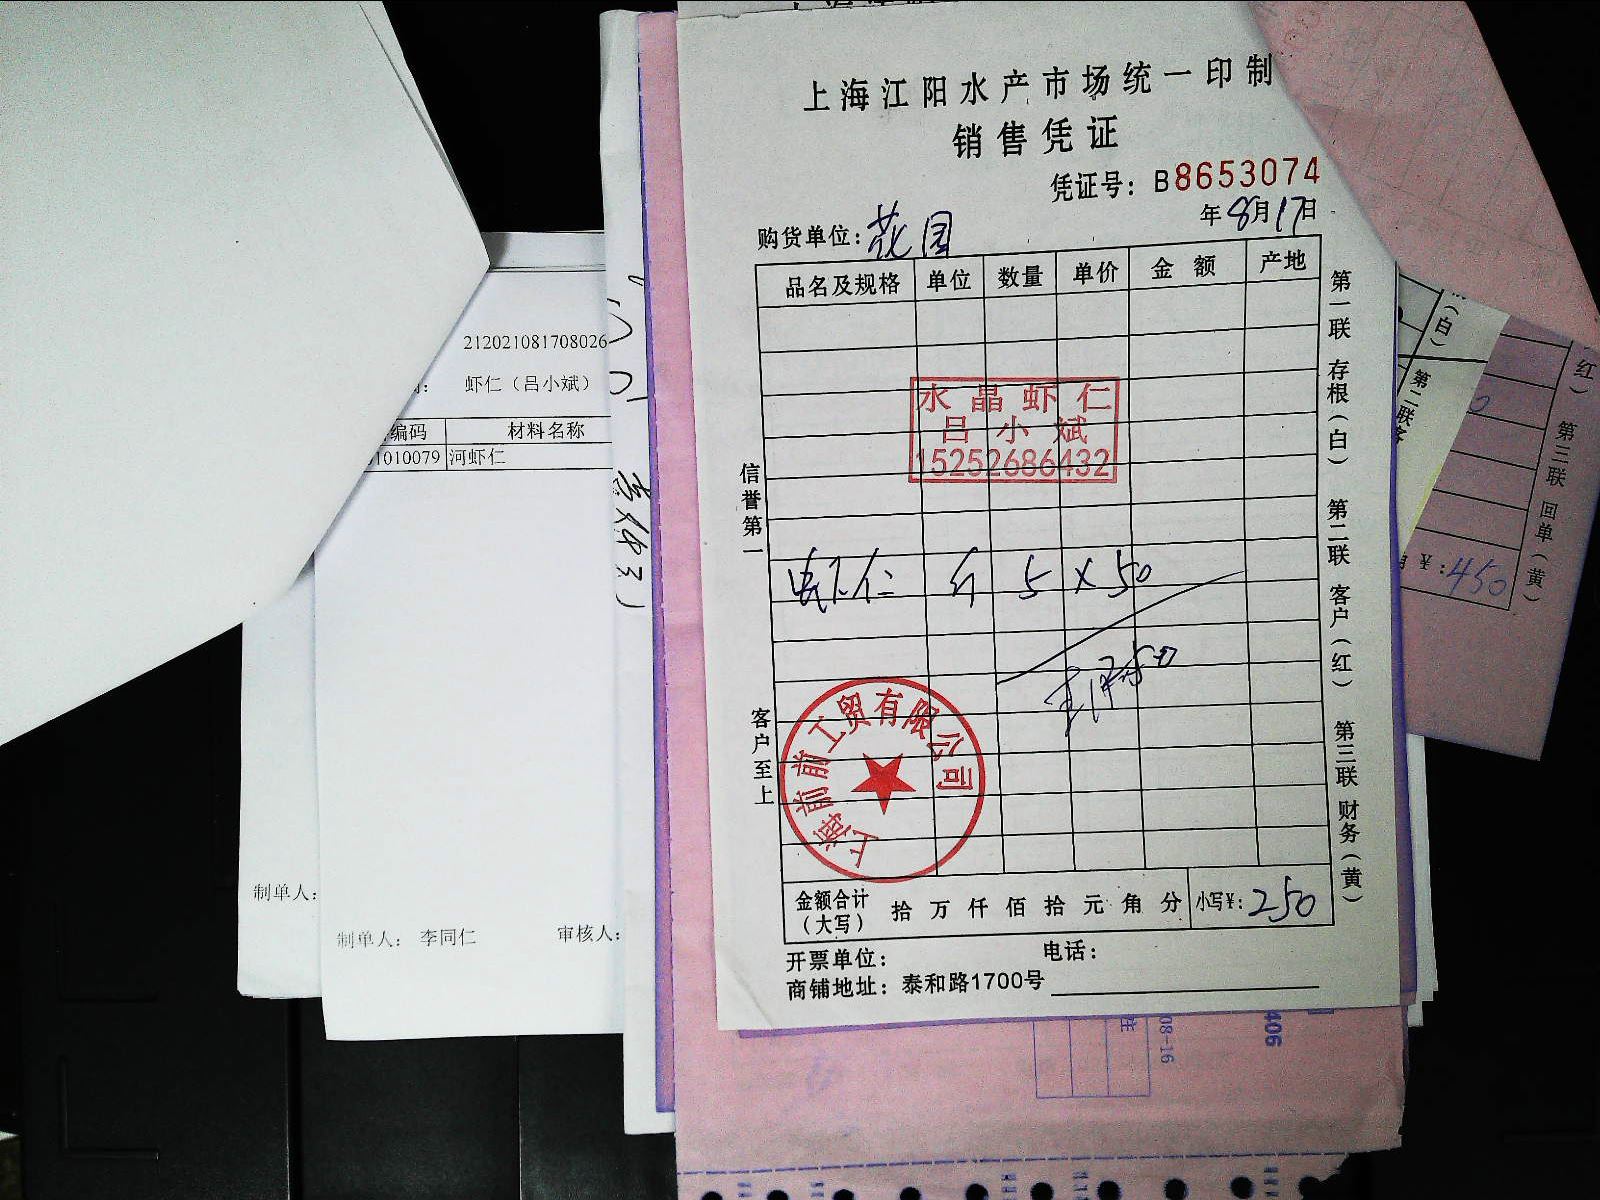 上海江阳水产市场统一印制
销售凭证
凭证号: B8653074
年8月17日
购货单位: 花园
品名及规格 单位 数量 单价 金 额 产地
水晶虾仁
吕小斌
15252686432
虾仁 斤 5 x 50
上海前前工贸有限公司
金额合计(大写) 拾 万 仟 佰 拾 元 角 分 小写¥: 250
开票单位: 电话:
商铺地址: 泰和路1700号
信誉第一
客户至上
第一联 存根(白) 第二联 客户(红) 第三联 财务(黄)
212021081708026
虾仁（吕小斌）
编码 材料名称
1010079 河虾仁
制单人:
制单人: 李同仁 审核人:
(白)
第二联客
红) 第三联 回单(黄)
¥: 450
08-16
406